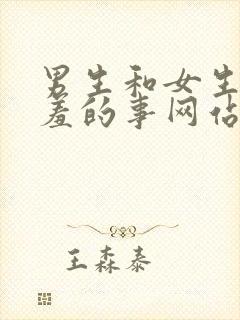 男生和女生
羞的事网站
王森泰